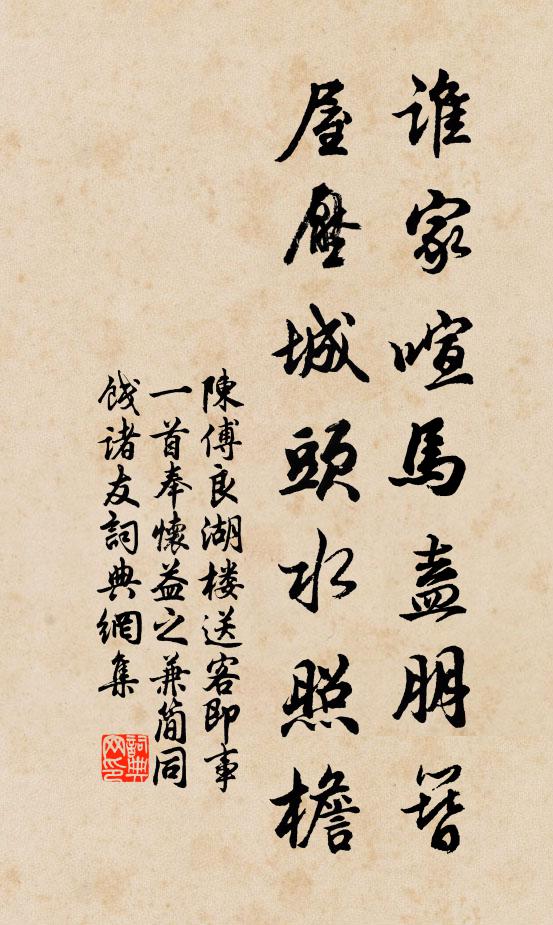 誰家喧馬盍朋簪
屋壓城頭水照檐
陳傅良湖楼送客即事
一首奉懷益之兼简同
餞諸友詞典網集
詞典网印